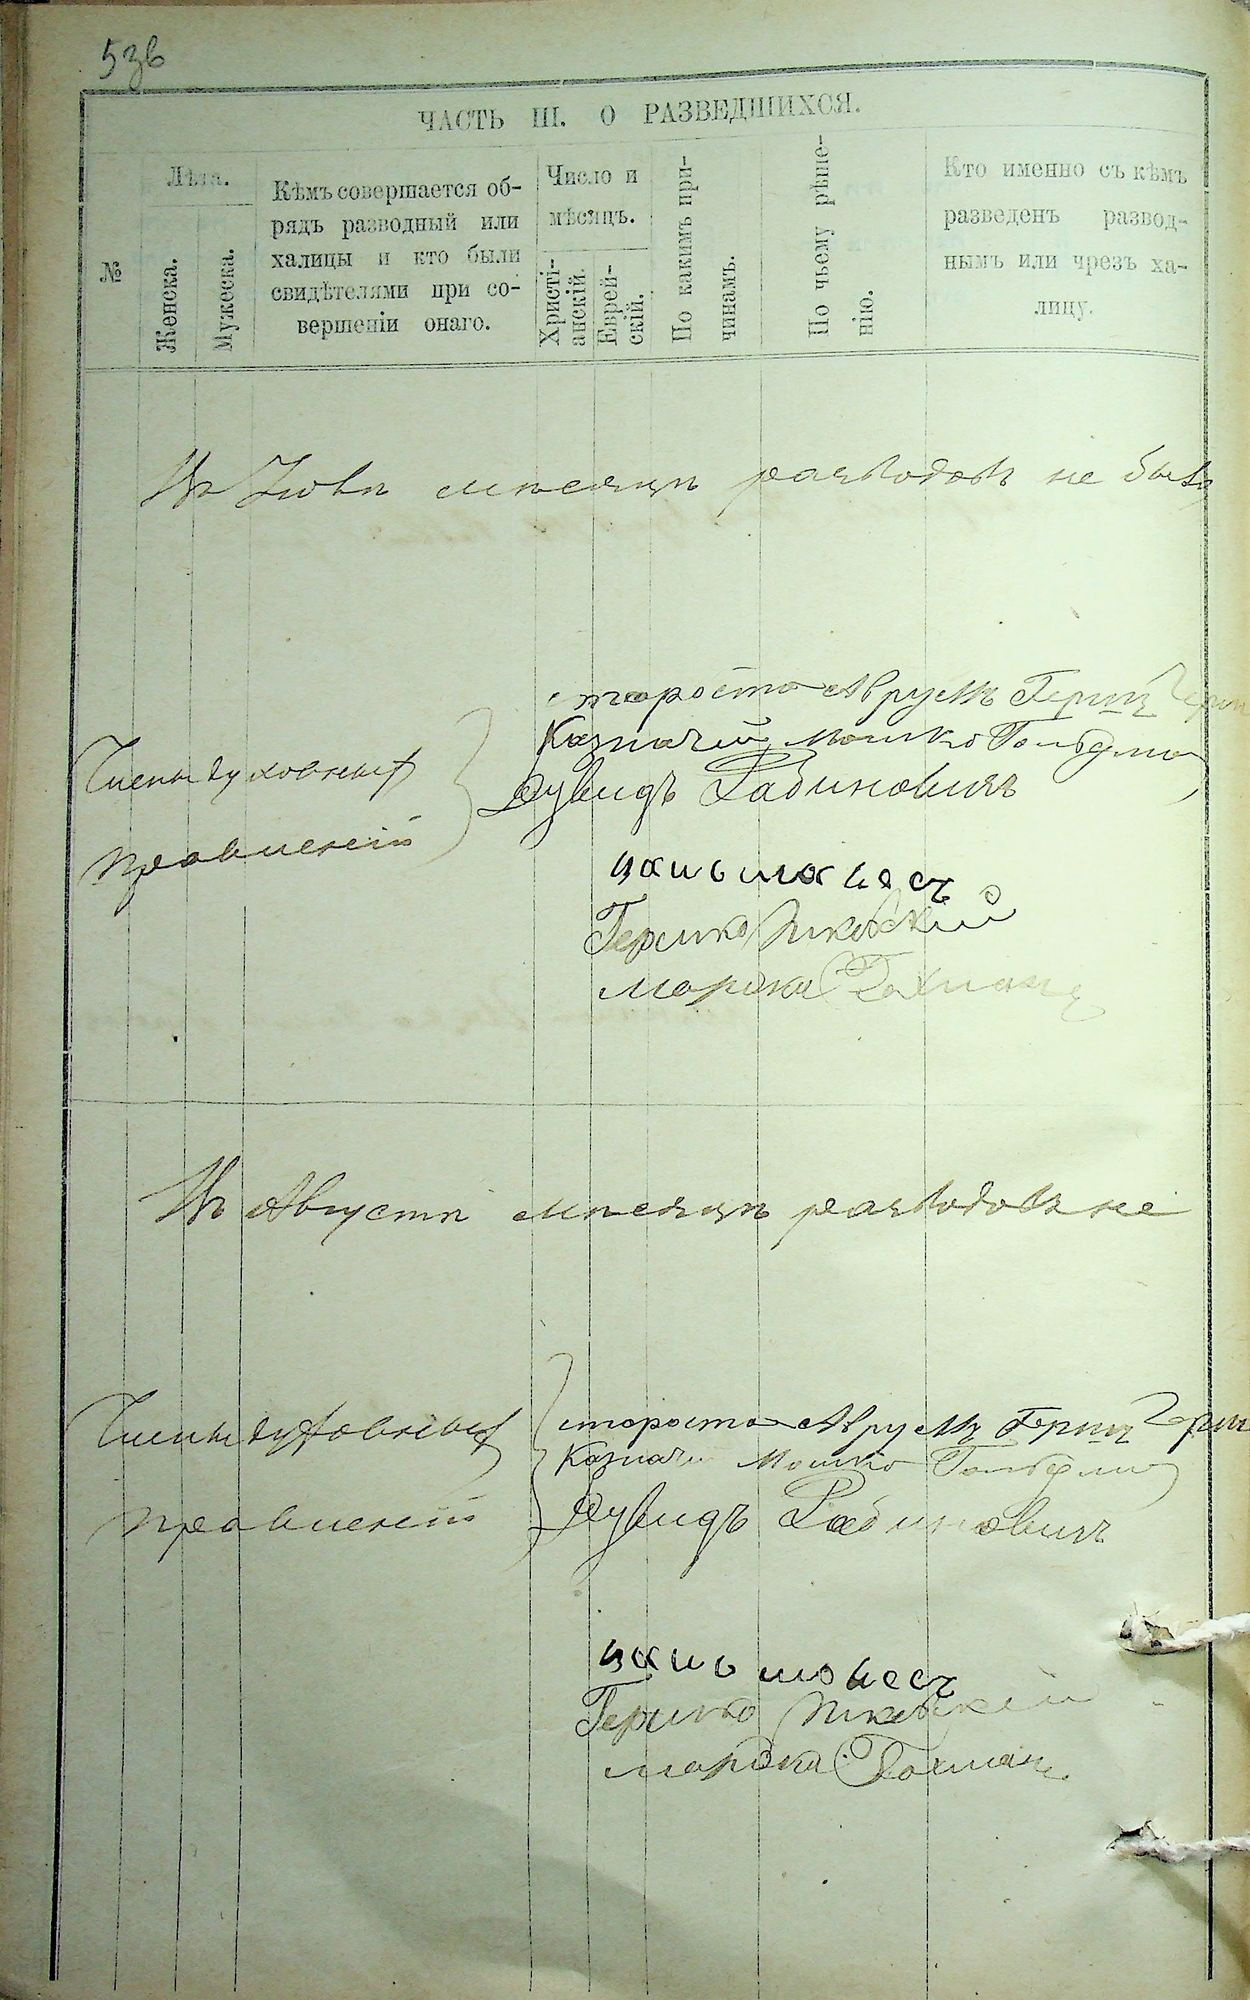 53в
ЧАСТЬ III. О РАЗВЕДШИХСЯ.
№
Лѣта.
Женска.
Мужеска.
Кѣмъ совершается об-
рядъ разводный или
халицы и кто были
свидѣтелями при со-
вершеніи онаго.
Число и
мѣсяцъ.
Христі-
анскій.
Еврей-
скій.
По какимъ при-
чинамъ.
По чьему рѣше-
нію.
Кто именно съ кѣмъ
разведенъ развод-
нымъ или чрезъ ха-
лицу.
Въ Іюлѣ мѣсяцѣ разводовъ не было
Члены духовныхъ
правленій
староста Аврумъ Герш
Казначей Мошко Гольдман
Дувидъ Рабиновичъ
Гершко
Мордка Гохман
Въ Августѣ мѣсяцѣ разводовъ не
Члены духовныхъ
правленій
староста Аврумъ Герш
Казначей Мошко Гольдман
Дувидъ Рабиновичъ
Гершко
Мордка Гохман